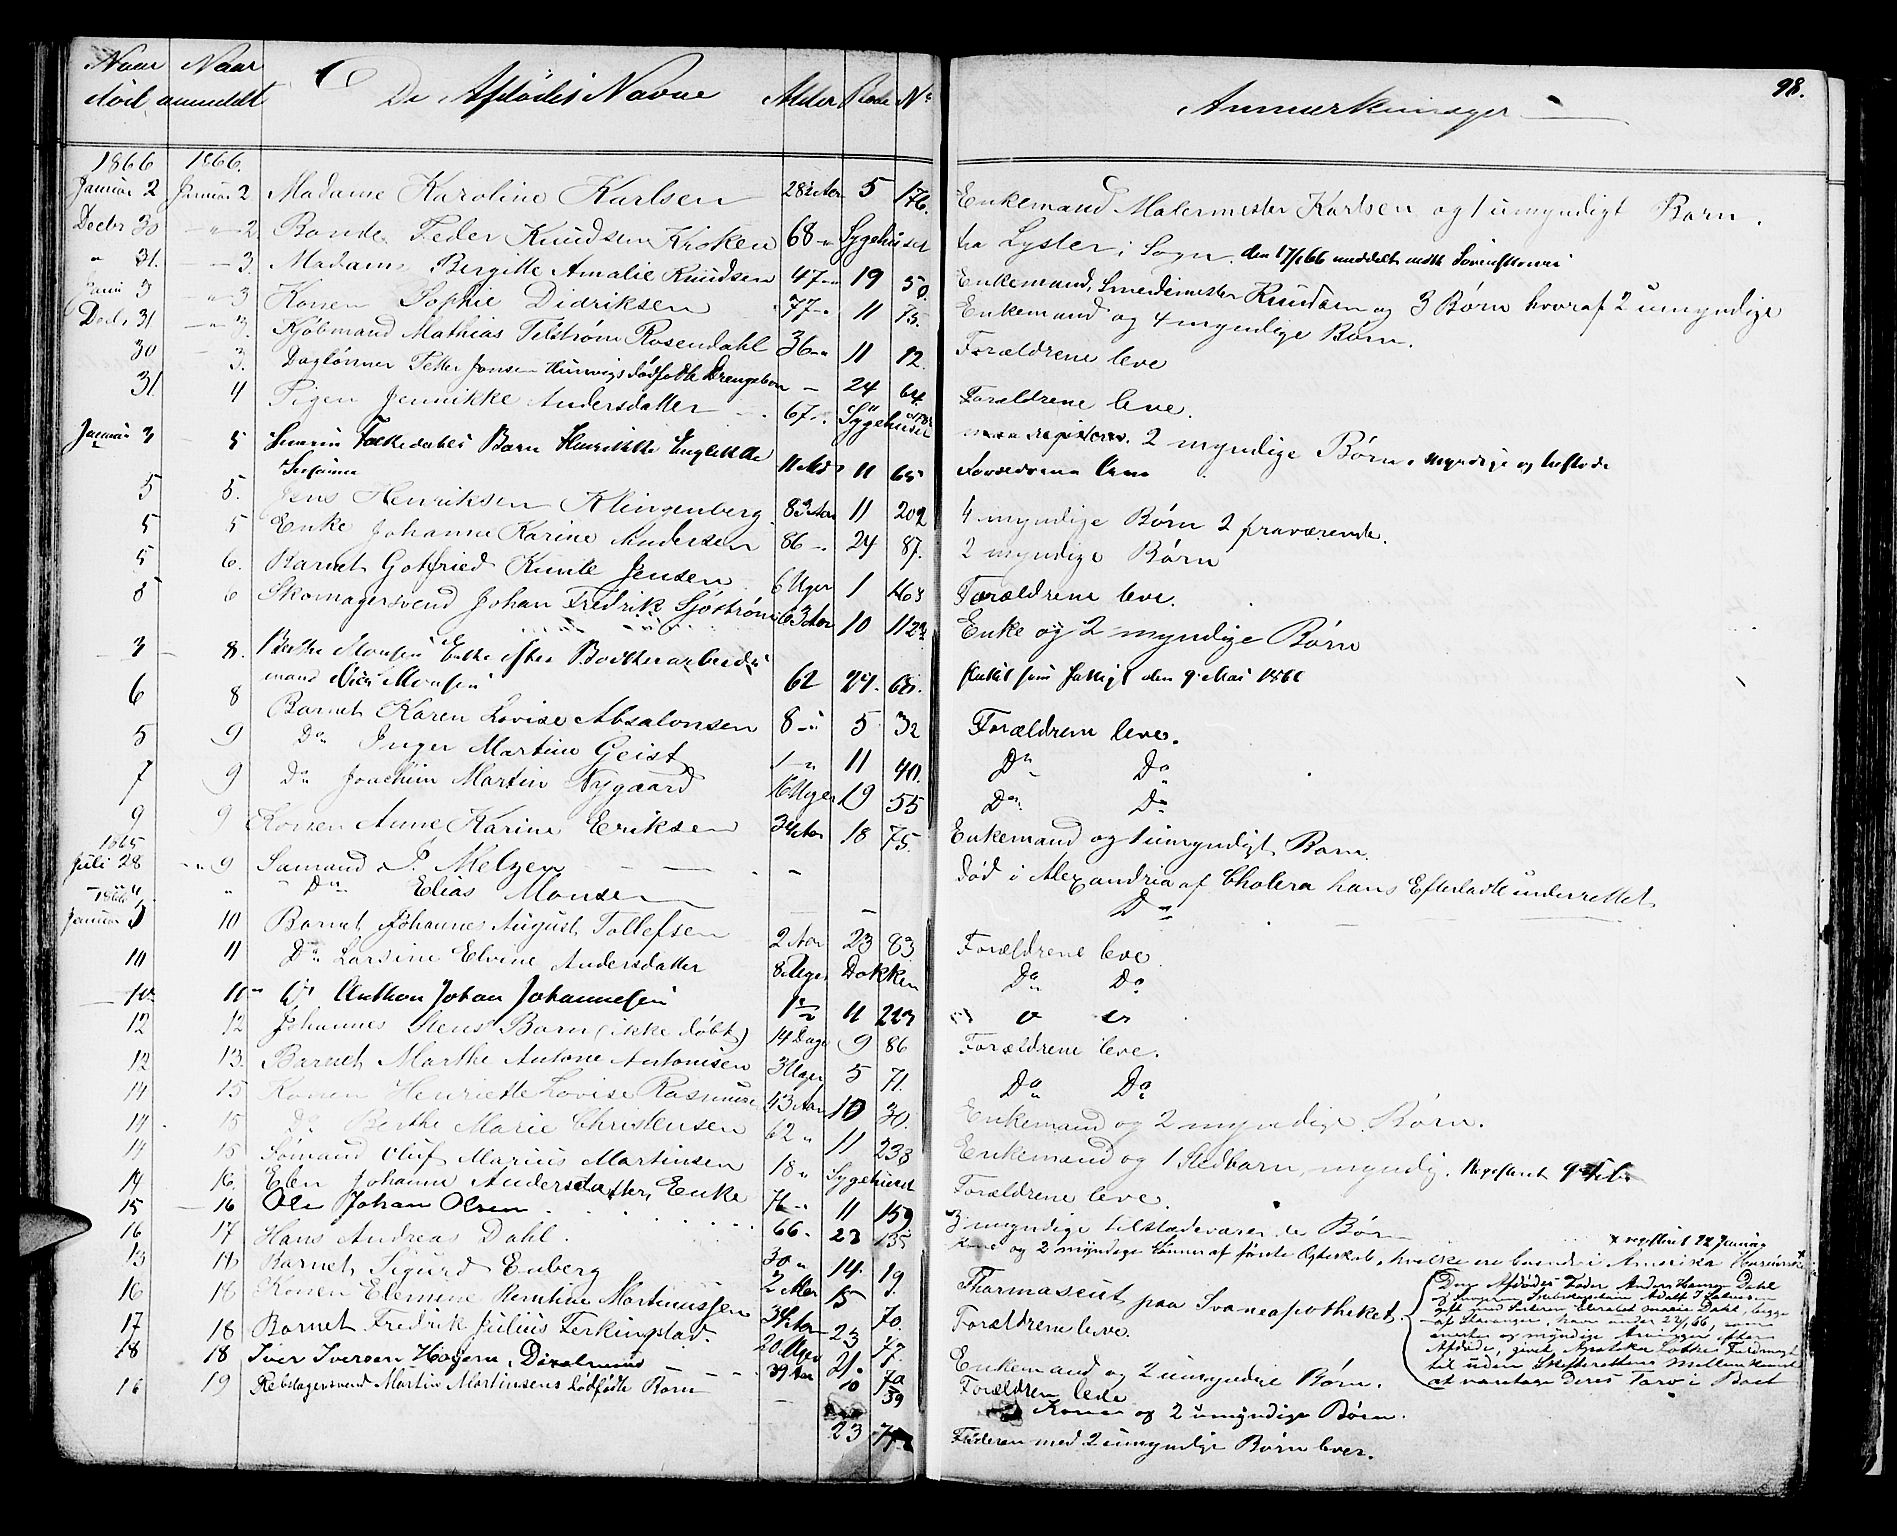 98.
Naar død Naar anmeldt De Afdødes Navne Alder Rode No Anmærkninger
1866 1866.
Januar 2 Januar 2 Madame Karoline Karlsen 28½ Aar 5 176. Enkemand Malermester Karlsen og 1 umyndigt Barn.
Decbr 30 - " - 2. Bonde Peder Knudsen Kroken 68 - " Sygehuset fra Lyster i Sogn. den 17/1 66 meddelt
" 31. - 3. Madame Bergitte Amalie Knudsen 47 - " 19 50. Enkemand, Smedemester Knudsen og 3 Børn hvoraf 2 umyndige
3 - " 3 Konen Sophie Didriksen 77 - " 11 15. Enkemand og 4 myndige Børn.
Decbr 31 - " 3. Kjøbmand Mathias Feldtrøm Rosendahl 36 - " 11 12. Forældrene leve
30 - 3. Daglønner Petter Jonsen dødfødte Drengebarn - 24 64. Forældrene leve.
31. 4 Pigen Jennikke Andersdatter 67 - " Sygehuset 2 myndige Børn, myndige og
Januar 3 5 Barn Henriette
11 11 65
5 5. Jens Henriksen Klingenberg 83 Aar 11 202 4 myndige Børn 2 fraværende.
5 5 Enke Johanne Karine Andersen 86 - " 24 87. 2 myndige Børn
5 6. Barnet Gotfried Kunte Jensen 6 Uger 1 163 Forældrene leve.
5 6 Skomagersvend Johan Fredrik Sjøstrøm 63 Aar 10 112 Enke og 2 myndige Børn
3 - 8. Berthe Monsen Enke efter Bødtkerarbeids
mand Monsen 62 24. 68. den 9 Mai 1866
6 8 Barnet Karen Lovise Absalonsen 8 - " 5 32 Forældrene leve.
5 9 Do Inger Martine Geist 1 - " 11 40. Do Do
7 9 Do Joachim Martin Nygaard 16 Uger 19 55 Do Do
9 9 Konen Anne Karine Eriksen 34 Aar 18 75. Enkemand og 1 umyndigt Barn.
1865
Juli 28 - " 9 Sømand P. Melzer - død i Alexandria af Cholera hans Efterladte underrettet
" Do Elias Monsen Do
1866
Januar 10 Barnet Johannes August Tollefsen 2 Aar 23 83. Forældrene leve
10 11 Do Larsine Elvine Andersdatter 8 Uger Dokken Do Do
10 11 Do Anthon Johan Johannesen 1½ 11 223
12 12 Johannes Stens Barn (ikke døbt) 14 Dage 9 86 Forældrene leve.
12 13. Barnet Marthe Antone Antonisen 3 Uger 5 71. Do Do
14 15 Konen Henriette Lovise Rasmusen 43 Aar 10 30. Enkemand og 2 myndige Børn.
14. 15 Do Berthe Marie Christensen 62 " 11 238 Enkemand og 1 Stedbarn, myndig. Registeret 9 Feb.
14 15 Sømand Oluf Marius Martinsen 18 " Sygehuset Forældrene leve.
14 16. Elen Johanne Andersdatter, Enke 76 - " 11 159 3 myndige tilstædeværende Børn
15 - 16 Ole Johan Olsen 66 - 23 135 Kone og 2 myndige Sønner af første Ægteskab, hvilke ere boende i Amerika
× registeret 22 Januar
16 17 Hans Andreas Dahl. 30 " 14. 19. Pharmaceut paa Svaneapotheket.
Den Afdødes Fader Anders Hansen Dahl
og Adolf J.
gift med Søsteren, Elisabet Marie Dahl, begge
af Stavanger, have under 22/1 66, som
eneste og myndige Arvinger efter
Afdøde, givet Apotheker Lothes Fuldmagt
til uden Skifterettens Mellemkomst
at varetage deres Tarv i Boet
13 17 Barnet Sigurd Enberg 2 15 70. Forældrene leve.
16 18 Konen Elemine Martinussen 34 Aar 23 47. Enkemand og 2 umyndige Børn.
17 18 Barnet Fredrik Julius Ferkingstad. 20 Uger 21. 70 Forældrene leve
18 18 Iver Iversen 39 Aar 10 59 Konen og 2 umyndige Børn.
16 19 Rebslagersvend Martin Martinsens dødfødte Barn - 23 Faderen med 2 umyndige Børn lever.